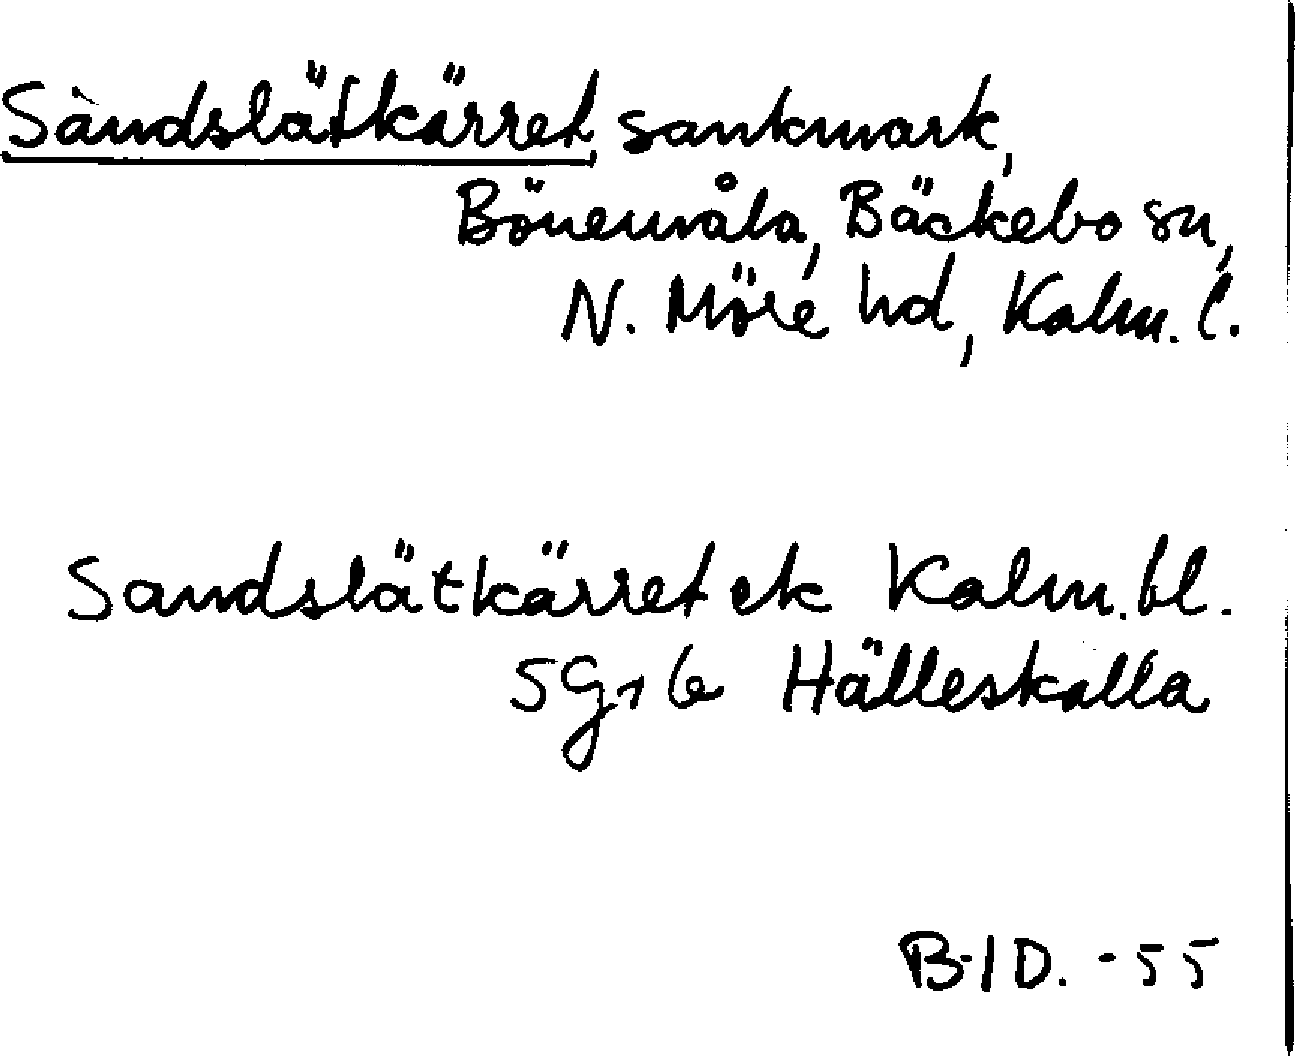 Sàndslätkärret, sankmark,
Bönemåla, Bäckebo sn,
N. Möre hd, Kalm. l.
Sandslätkärret ek Kalm. bl.
5G 1 6 Hälleskalla
B-ID. -55